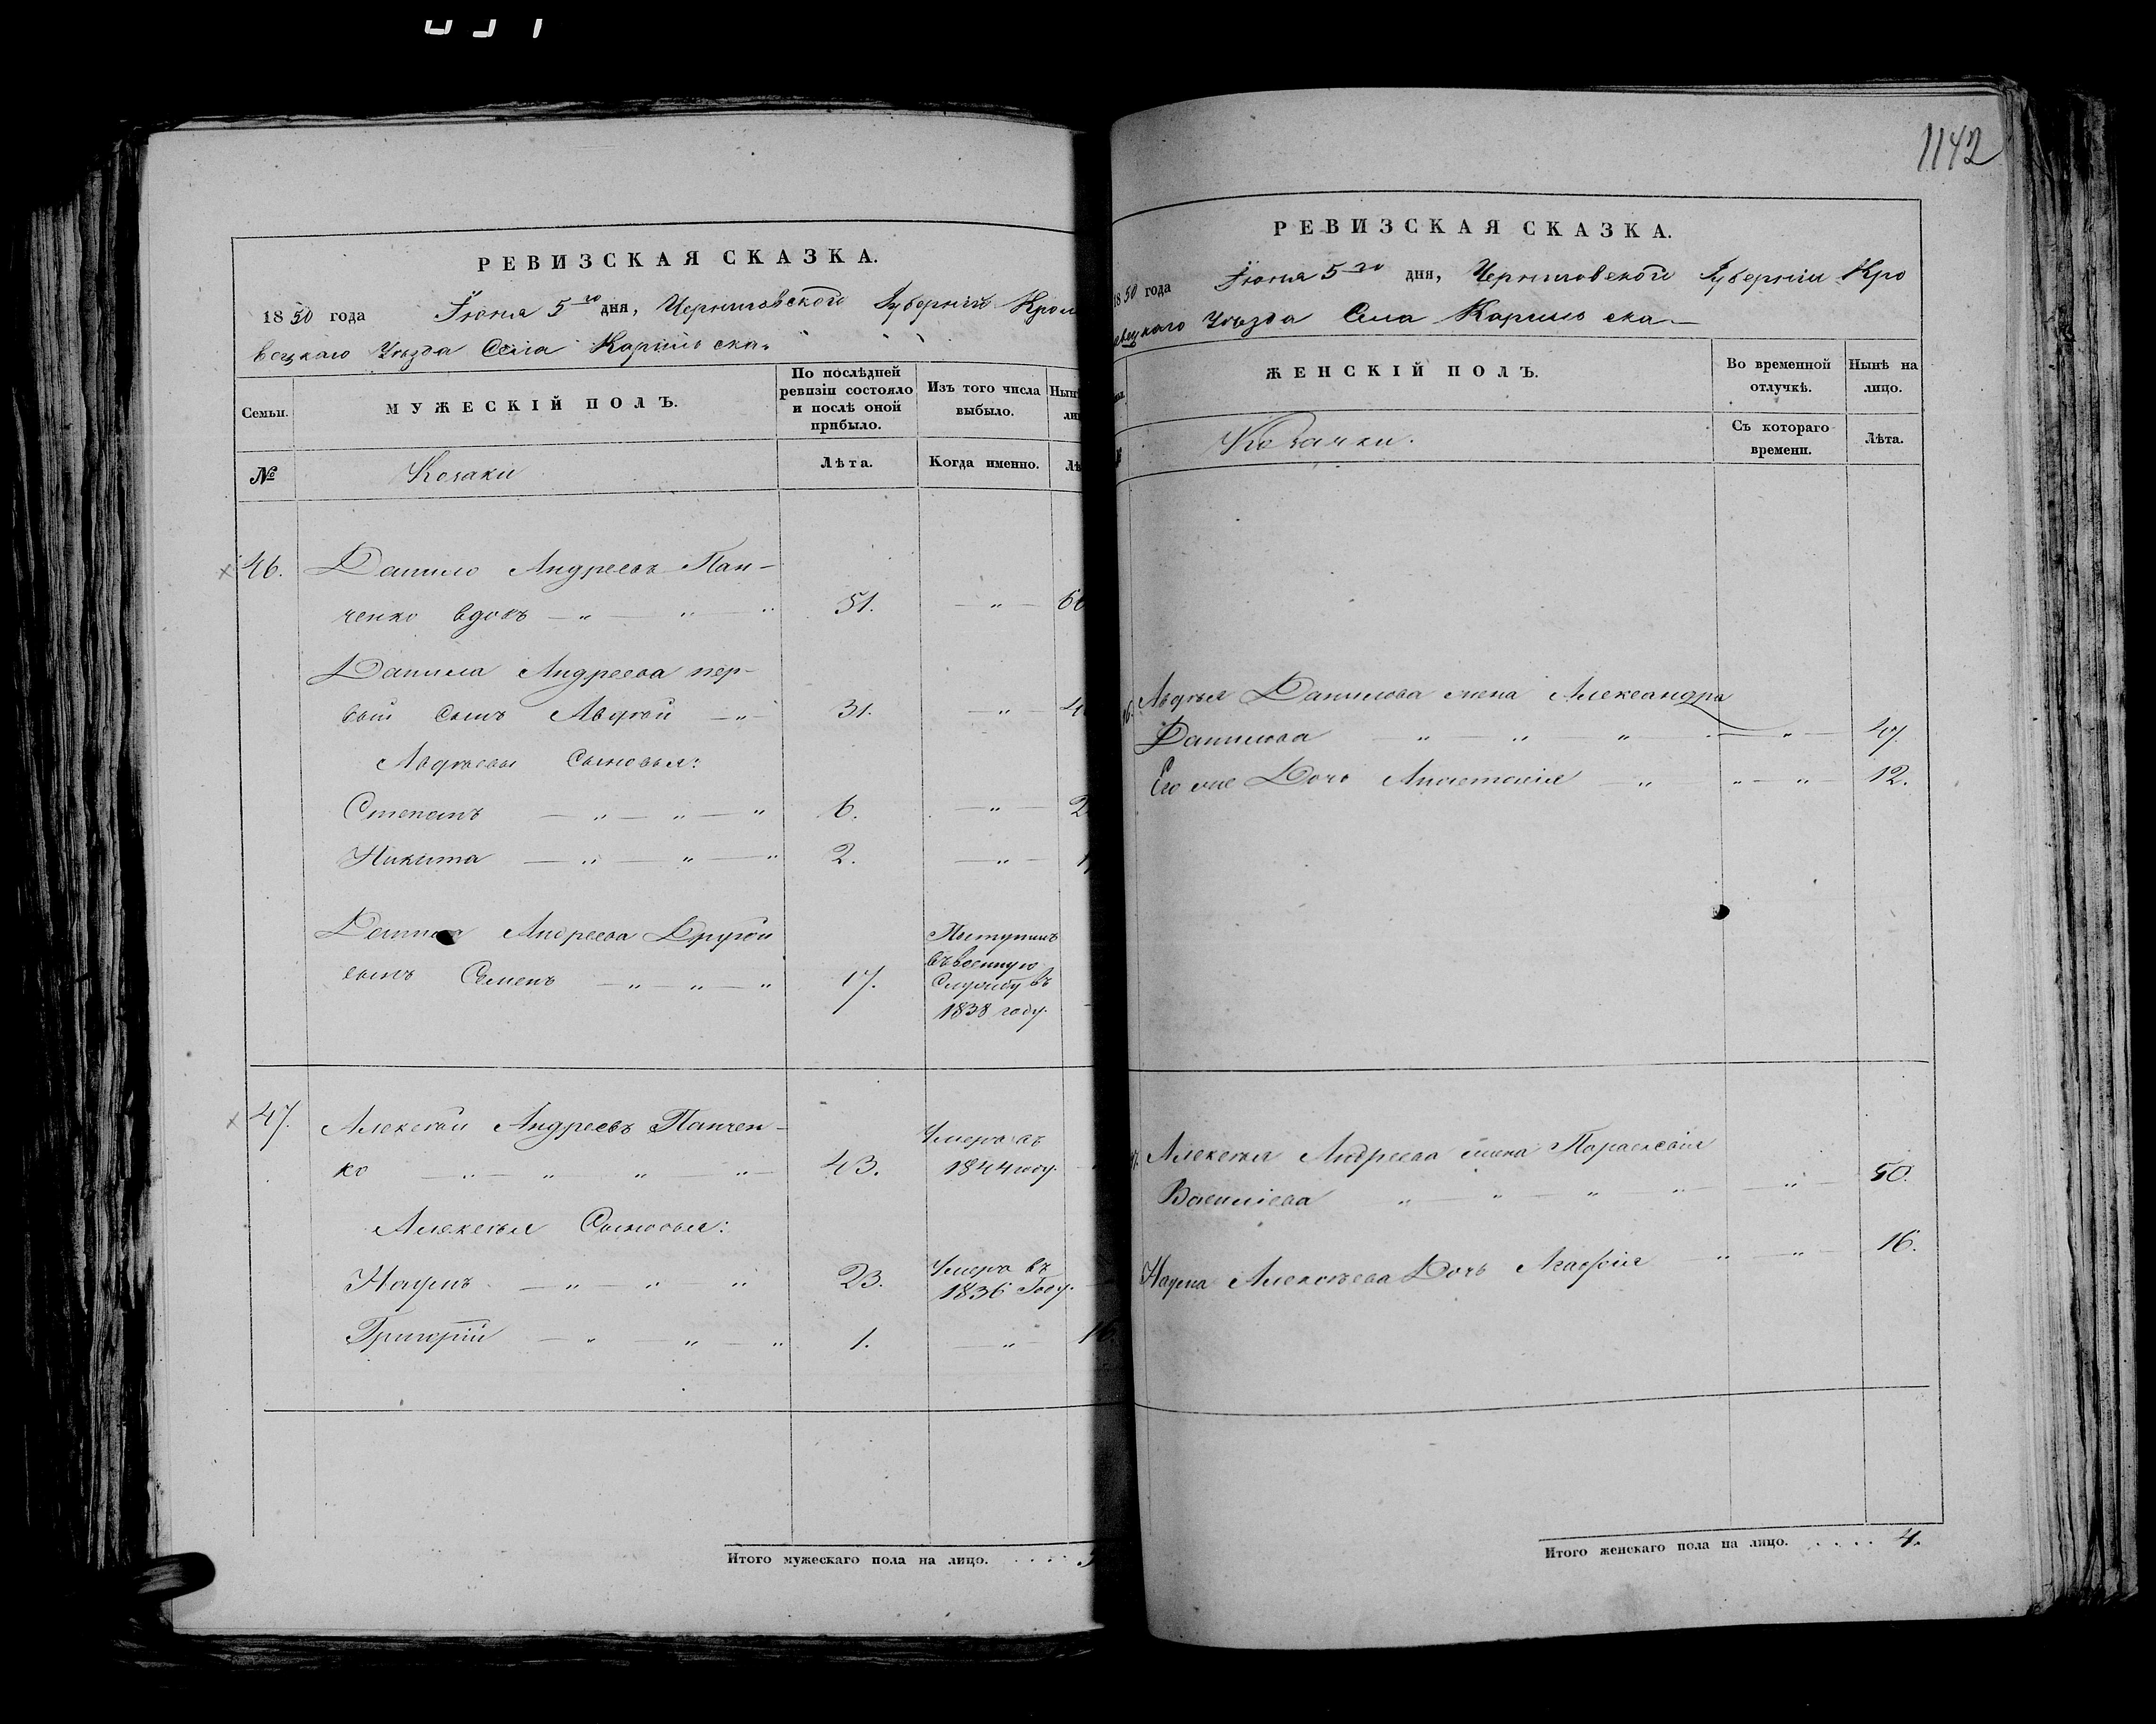 1142
РЕВИЗСКАЯ СКАЗКА.
1850 года Іюня 5го дня, Черниговской Губерніи Кроле
вецкаго Уѣзда Села Карильска.
Семьи.
МУЖЕСКІЙ ПОЛЪ.
По послѣдней
ревизіи состояло
и послѣ оной
прибыло.
Изъ того числа
выбыло.
№
Козаки
Лѣта.
Когда именно.
46. Данило Андреевъ Пан-
ченко вдовъ 51.
Данила Андреева пер-
вый сынъ Авдѣй 31.
Авдѣевы Сыновья:
Степанъ 6.
Никита 2.
Данила Андреева Другой
сынъ Семенъ 17.
Поступилъ
въ военную
Службу въ
1838 году.
47. Алексѣй Андреевъ Панчен-
ко 43.
Умеръ въ
1844 году.
Алексѣя Сыновья:
Наумъ 23.
Умеръ въ
1836 Году.
Григорій 1.
Итого мужескаго пола на лицо. . . . .
РЕВИЗСКАЯ СКАЗКА.
1850 года Іюня 5го дня, Черниговской Губерніи Кро
левецкаго Уѣзда Села Карильска
ЖЕНСКІЙ ПОЛЪ.
Во временной
отлучкѣ.
Нынѣ на
лицо.
Козачки.
Съ котораго
времени.
Лѣта.
Авдѣя Данилова жена Александра
Данилова 47.
Его же Дочь Анастасія 12.
Алексѣя Андреева жена Параскевія
Василіева 50.
Наума Алексѣева Дочь Агафія 16.
Итого женскаго пола на лицо. . . . . 4.